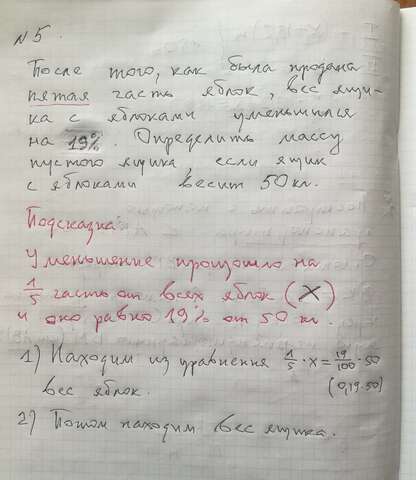 №5.
После того, как была продана
пятая часть яблок, вес ящи-
ка с яблоками уменьшился
на 19%. Определить массу
пустого ящика если ящик
с яблоками весит 50 кг.
Подсказка:
Уменьшение произошло на
1/5 часть от всех яблок (X)
и оно равно 19% от 50 кг.
1) Находим из уравнения 1/5 · x = 19/100 · 50
вес яблок. (0,19·50)
2) Потом находим вес ящика.